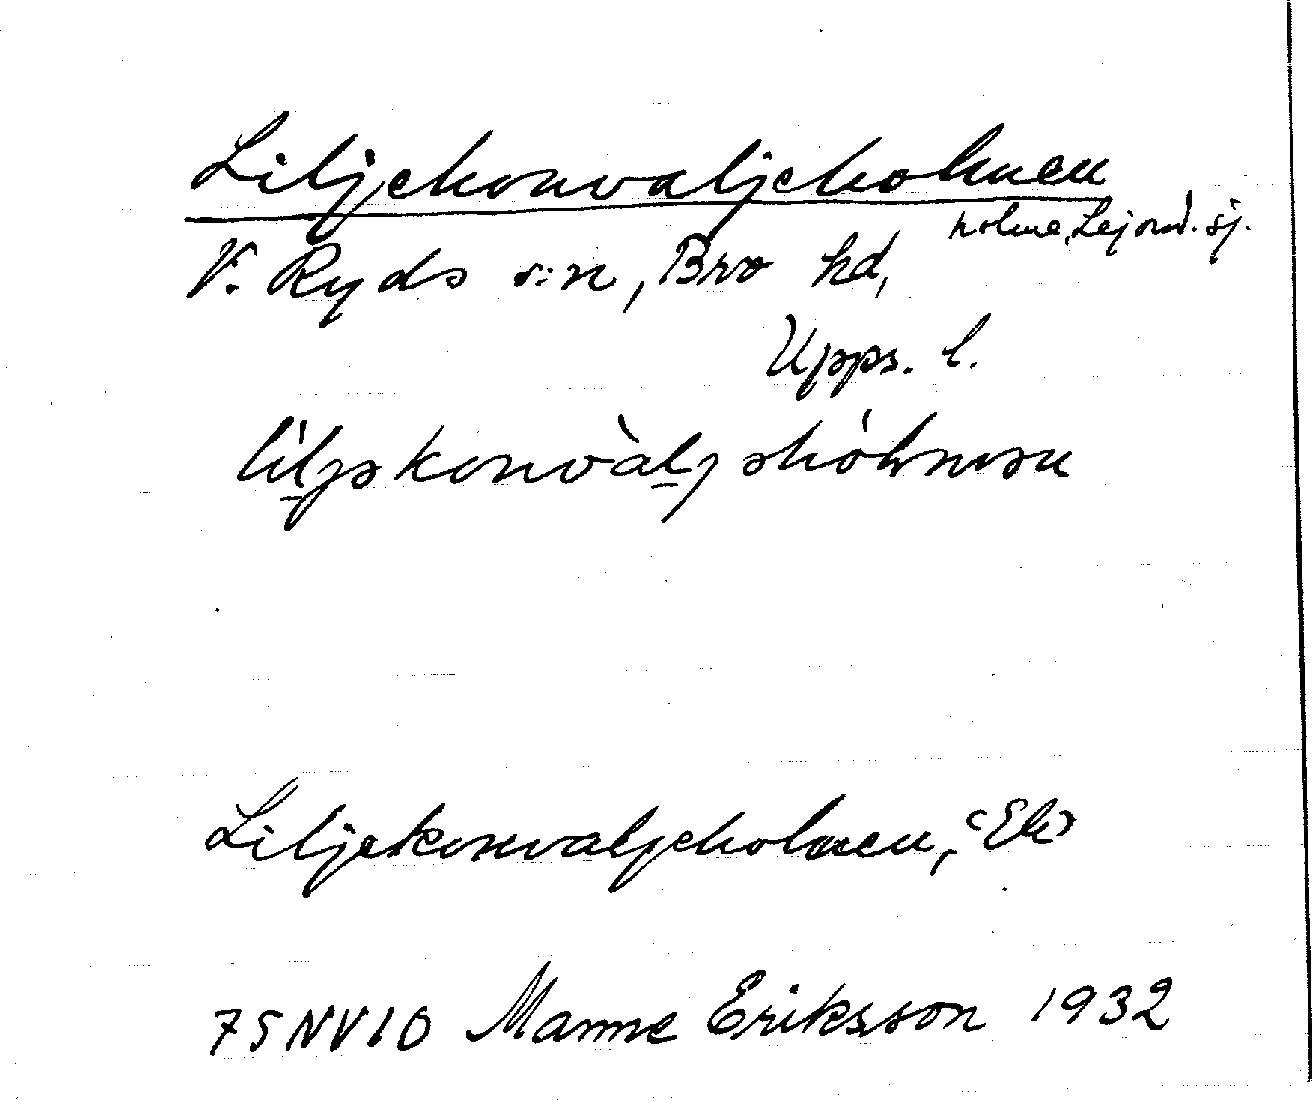 Liljekonvaljeholmen
holme, Lejond. sj.
V. Ryds s:n, Bro hd,
Upps. l.
Liljekonvaljeholmen, (Ek)
75NV10 Manne Eriksson 1932